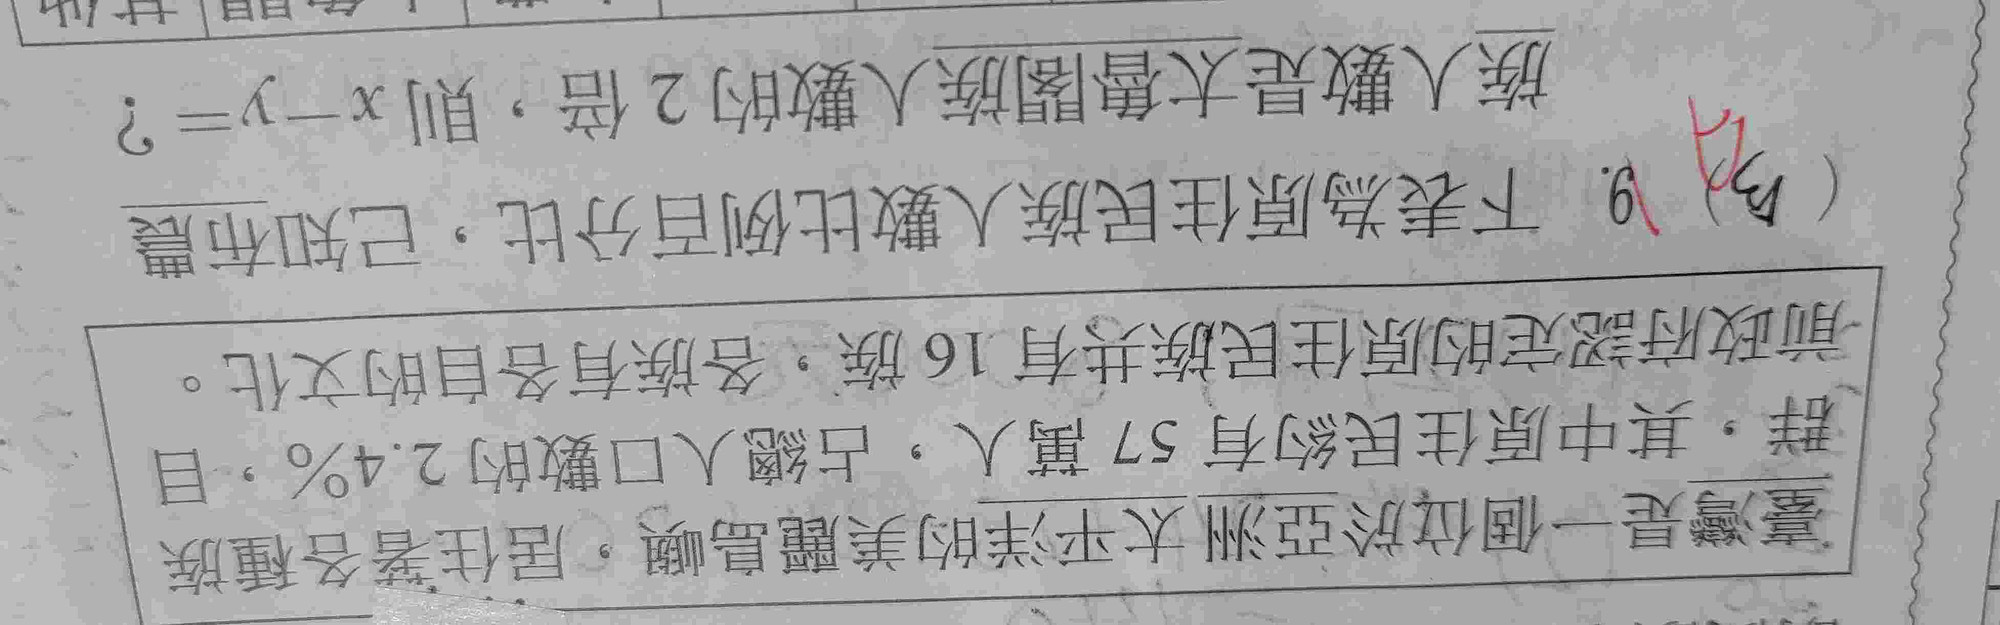 臺灣是一個位於亞洲太平洋的美麗島嶼，居住著各種族
群，其中原住民約有 57 萬人，占總人口數的 2.4%，目
前政府認定的原住民族共有 16 族，各族有各自的文化。
( B ) 9. 下表為原住民族人數比例百分比，已知布農
族人數是太魯閣族人數的 2 倍，則 x－y＝？
其他